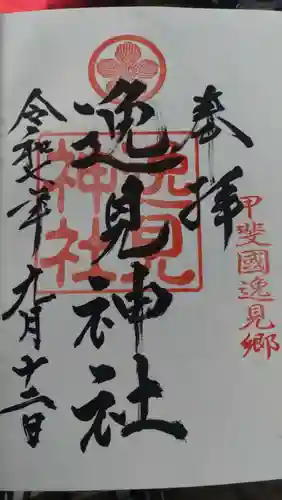 奉拝
甲斐國逸見郷
逸見神社
逸見神社
令和七年九月十二日